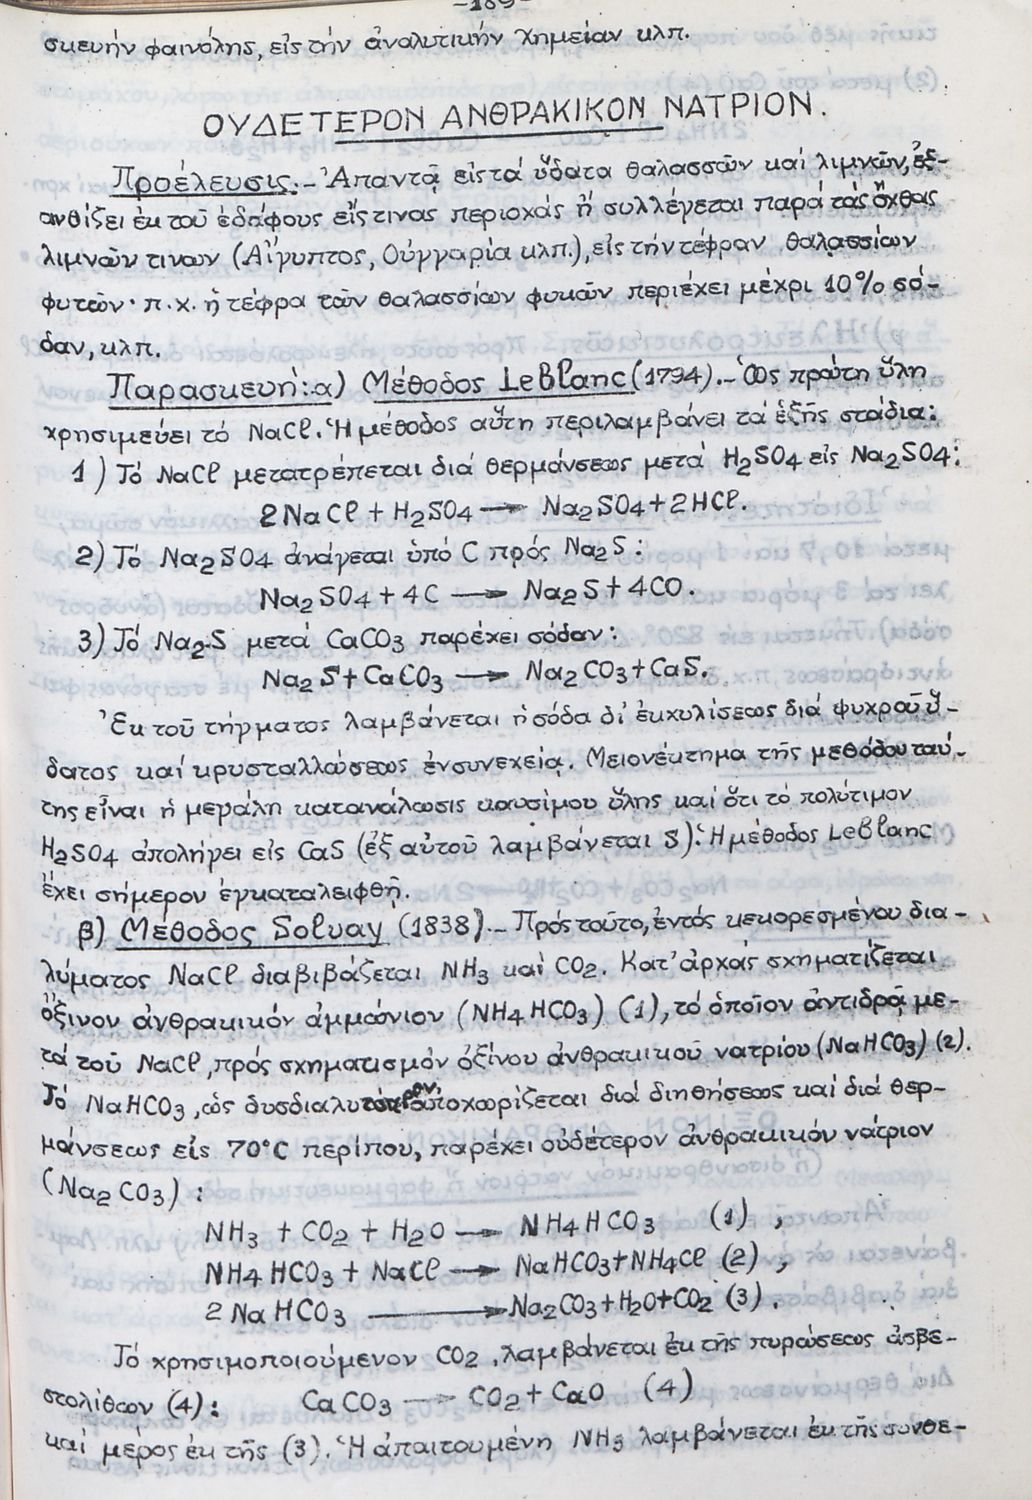 -189-
σκευήν φαινόλης, εἰς τήν ἀναλυτικήν χημείαν κλπ.
ΟΥΔΕΤΕΡΟΝ ΑΝΘΡΑΚΙΚΟΝ ΝΑΤΡΙΟΝ.
Προέλευσις.- Ἀπαντᾷ εἰς τά ὕδατα θαλασσῶν καί λιμνῶν, ἐξ-
ανθίζει ἐκ τοῦ ἐδάφους εἴς τινας περιοχάς ἤ συλλέγεται παρά τάς ὄχθας
λιμνῶν τινων (Αἴγυπτος, Οὑγγαρία κλπ.), εἰς τήν τέφραν θαλασσίων
φυτῶν· π.χ. ἡ τέφρα τῶν θαλασσίων φυκῶν περιέχει μέχρι 10% σό-
δαν, κλπ.
Παρασκευή: α) Μέθοδος LeBlanc (1794).- Ὡς πρώτη ὕλη
χρησιμεύει τό NaCl. Ἡ μέθοδος αὕτη περιλαμβάνει τά ἑξῆς στάδια:
1) Τό NaCl μετατρέπεται διά θερμάνσεως μετά H₂SO₄ εἰς Na₂SO₄:
2NaCl + H₂SO₄ → Na₂SO₄ + 2HCl.
2) Τό Na₂SO₄ ἀνάγεται ὑπό C πρός Na₂S:
Na₂SO₄ + 4C → Na₂S + 4CO.
3) Τό Na₂S μετά CaCO₃ παρέχει σόδαν:
Na₂S + CaCO₃ → Na₂CO₃ + CaS.
Ἐκ τοῦ τήγματος λαμβάνεται ἡ σόδα δι' ἐκχυλίσεως διά ψυχροῦ ὕ-
δατος καί κρυσταλλώσεως ἐν συνεχείᾳ. Μειονέκτημα τῆς μεθόδου ταύ-
της εἶναι ἡ μεγάλη κατανάλωσις καυσίμου ὕλης καί ὅτι τό πολύτιμον
H₂SO₄ ἀπολήγει εἰς CaS (ἐξ αὐτοῦ λαμβάνεται S). Ἡ μέθοδος LeBlanc
ἔχει σήμερον ἐγκαταλειφθῆ.
β) Μέθοδος Solvay (1838).- Πρός τοῦτο, ἐντός κεκορεσμένου δια-
λύματος NaCl διαβιβάζεται NH₃ καί CO₂. Κατ' ἀρχάς σχηματίζεται
ὄξινον ἀνθρακικόν ἀμμώνιον (NH₄HCO₃) (1), τό ὁποῖον ἀντιδρᾷ με-
τά τοῦ NaCl, πρός σχηματισμόν ὀξίνου ἀνθρακικοῦ νατρίου (NaHCO₃) (2).
Τό NaHCO₃, ὡς δυσδιαλυτώτερον, ἀποχωρίζεται διά διηθήσεως καί διά θερ-
μάνσεως εἰς 70°C περίπου, παρέχει οὐδέτερον ἀνθρακικόν νάτριον
(Na₂CO₃):
NH₃ + CO₂ + H₂O → NH₄HCO₃ (1) ,
NH₄HCO₃ + NaCl → NaHCO₃ + NH₄Cl (2) ,
2NaHCO₃ → Na₂CO₃ + H₂O + CO₂ (3) .
Τό χρησιμοποιούμενον CO₂, λαμβάνεται ἐκ τῆς πυρώσεως ἀσβε-
στολίθων (4): CaCO₃ → CO₂ + CaO (4)
καί μέρος ἐκ τῆς (3). Ἡ ἀπαιτουμένη NH₃ λαμβάνεται ἐκ τῆς συνθε-